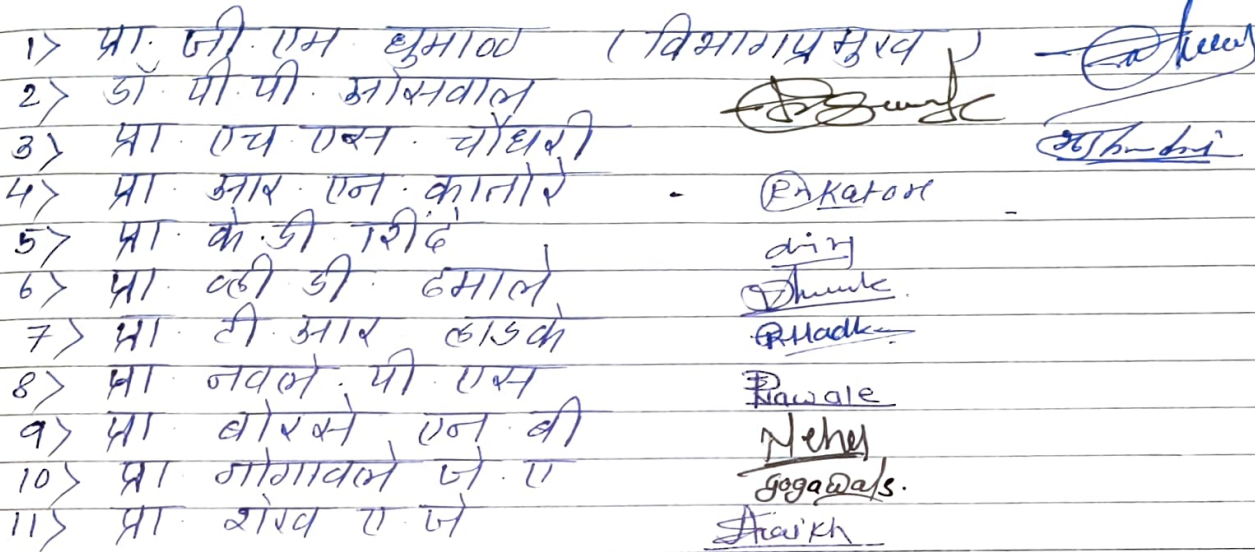 1> प्रा. जी. एम धुमाळ (विभागप्रमुख)
2> डॉ. पी. पी. ओसवाल
3> प्रा. एच. एस. चौधरी
4> प्रा. आर. एन. कातोरे - RnKatore
5> प्रा. के. डी शिंदे
6> प्रा. व्ही. डी. ढमाले
7> प्रा. टी. आर लाडके
8> प्रा. नवले. पी. एस Nawale
9> प्रा. बोरसे एन. बी Neha
10> प्रा. गोगावले जे. ए gogawale.
11> प्रा. शेख ए. जे Shaikh